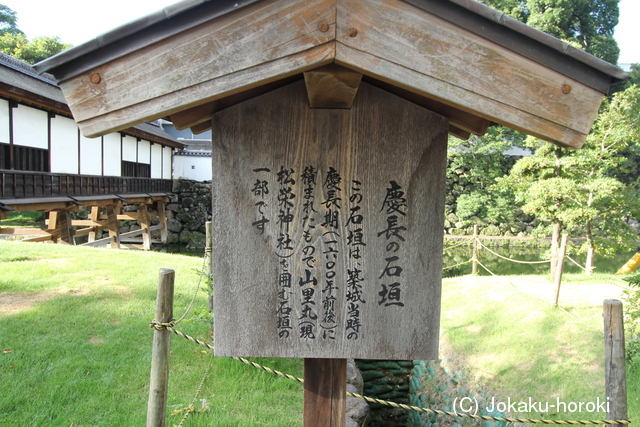 慶長の石垣
この石垣は、築城当時の
慶長期(一六〇〇年前後)に
積まれたもので山里丸(現
松栄神社)を囲む石垣の
一部です。
(C) Jokaku-horoki